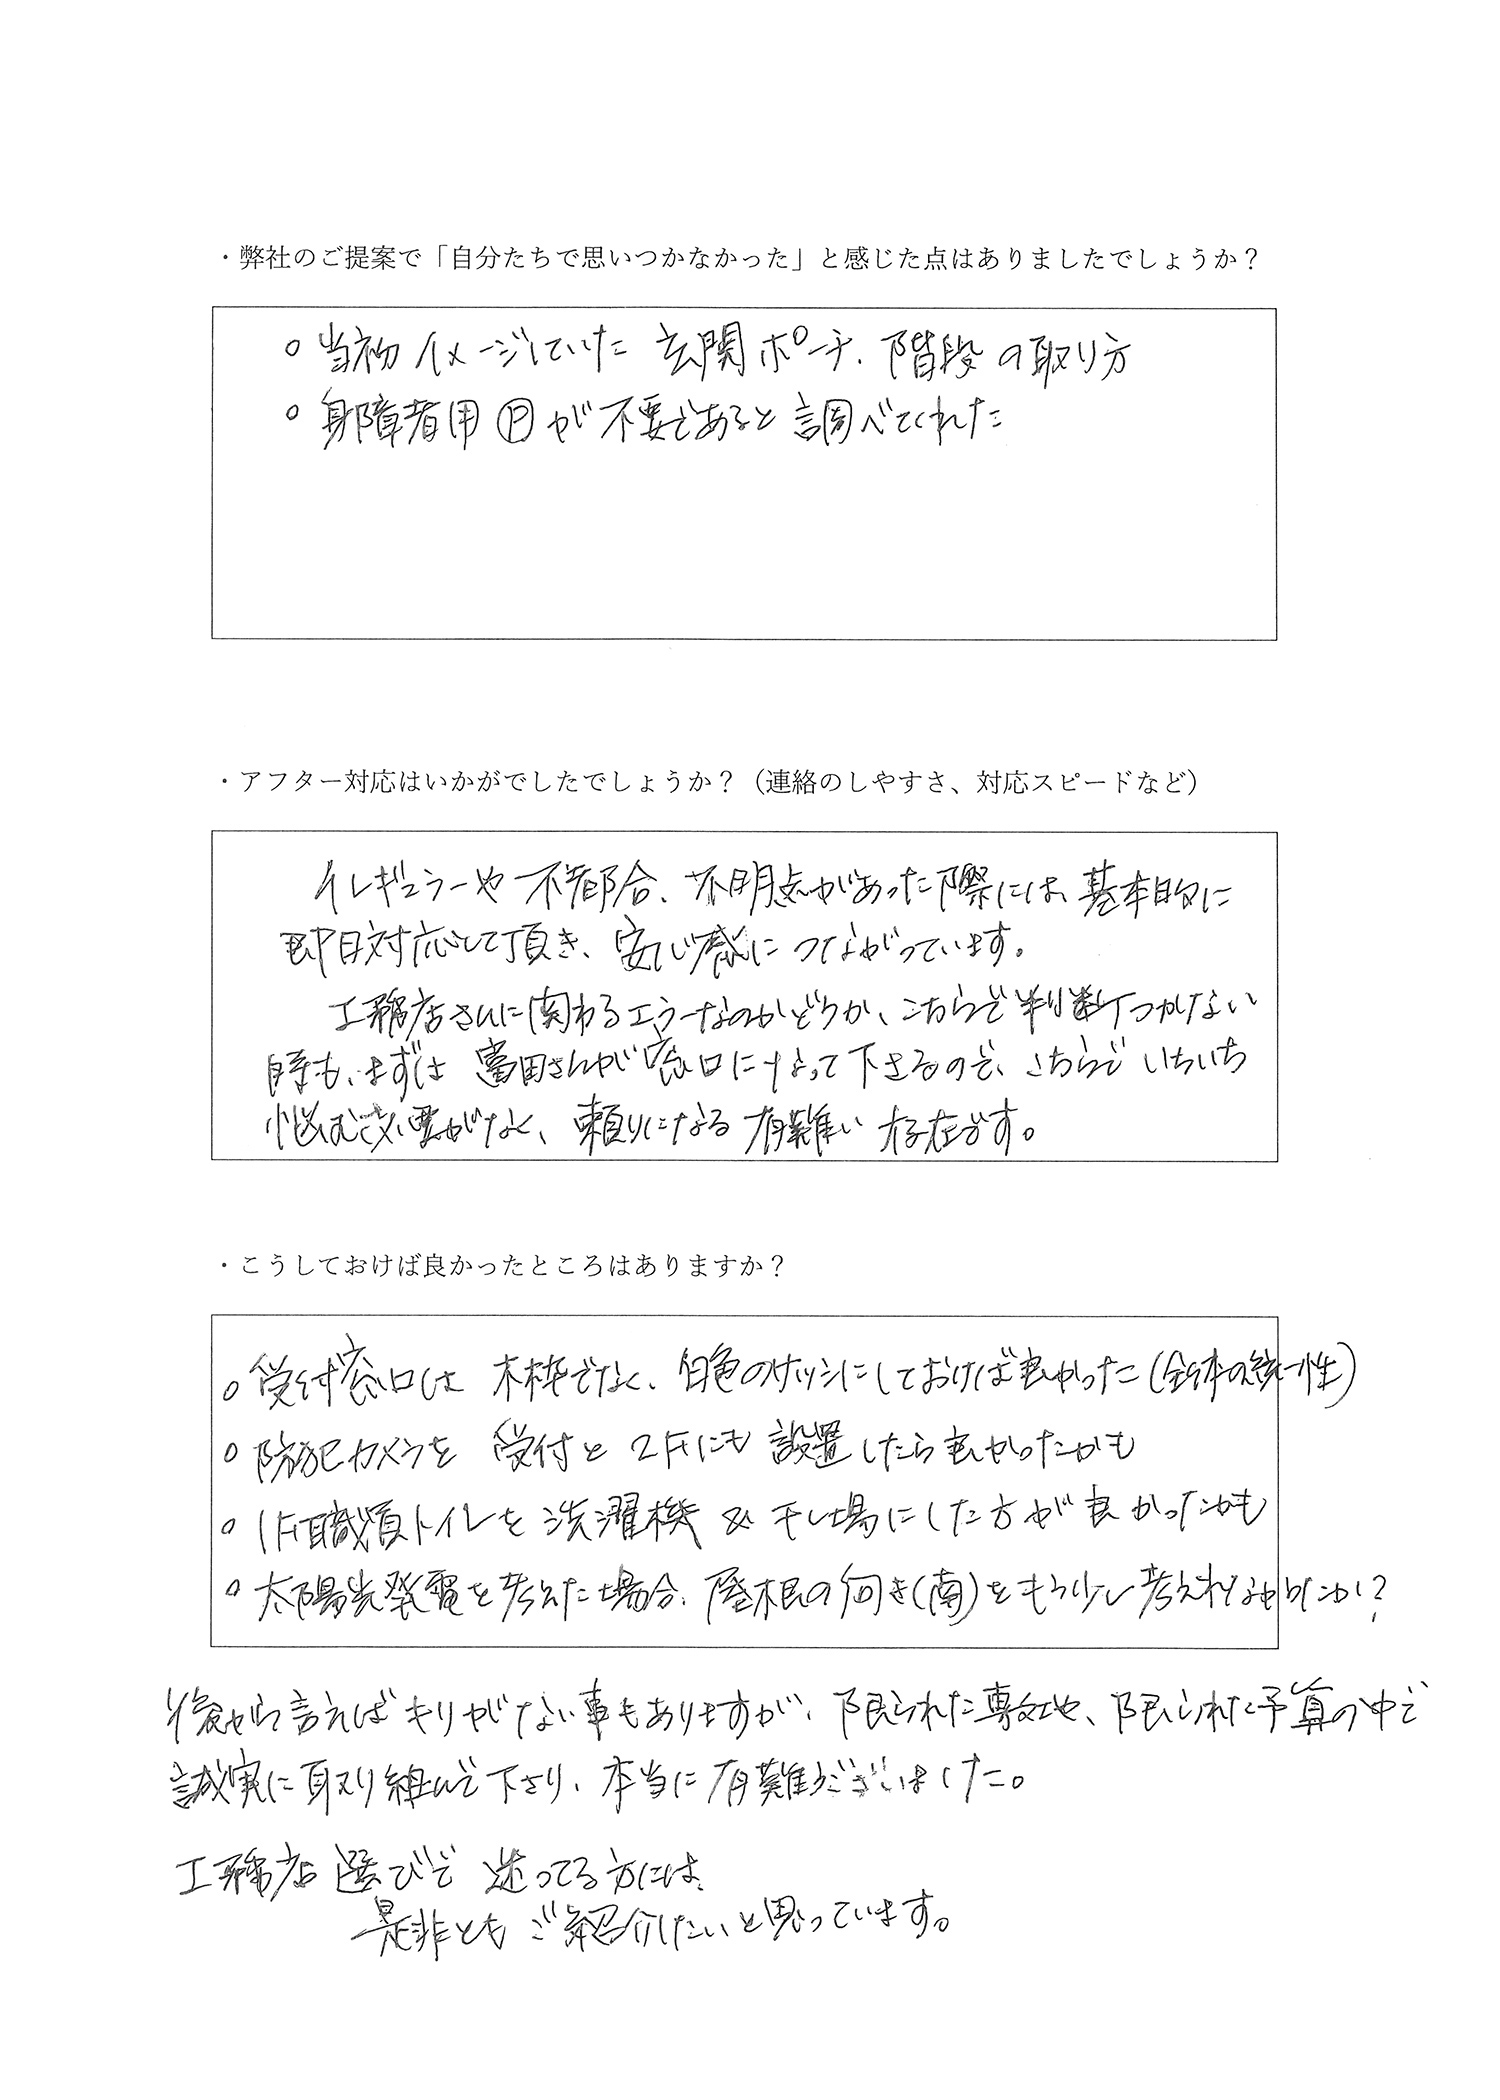 ・弊社のご提案で「自分たちで思いつかなかった」と感じた点はありましたでしょうか？
○ 当初イメージしていた 玄関ポーチ、階段の取り方
○ 身障者用Ⓟが不要であると調べてくれた
・アフター対応はいかがでしたでしょうか？（連絡のしやすさ、対応スピードなど）
イレギュラーや不都合、不明点があった際には、基本的に
即日対応して頂き、安心感につながっています。
工務店さんに関わるエラーなのかどうか、こちらで判断つかない
時も、まずは富田さんが窓口になって下さるので、こちらでいちいち
悩む必要がなく、頼りになる有難い存在です。
・こうしておけば良かったところはありますか？
○ 受付窓口は木枠でなく、白色のサッシにしておけば良かった（全体の統一性）
○ 防犯カメラを受付と2Fにも設置したら良かったかも
○ 1F職員トイレを洗濯機&干し場にした方が良かったかも
○ 太陽光発電を考えた場合、屋根の向き(南)をもう少し考えればよかったか？
後から言えばキリがない事もありますが、限られた敷地や、限られた予算の中で
誠実に取り組んで下さり、本当に有難うございました。
工務店選びで迷ってる方には、
是非ともご紹介したいと思っています。